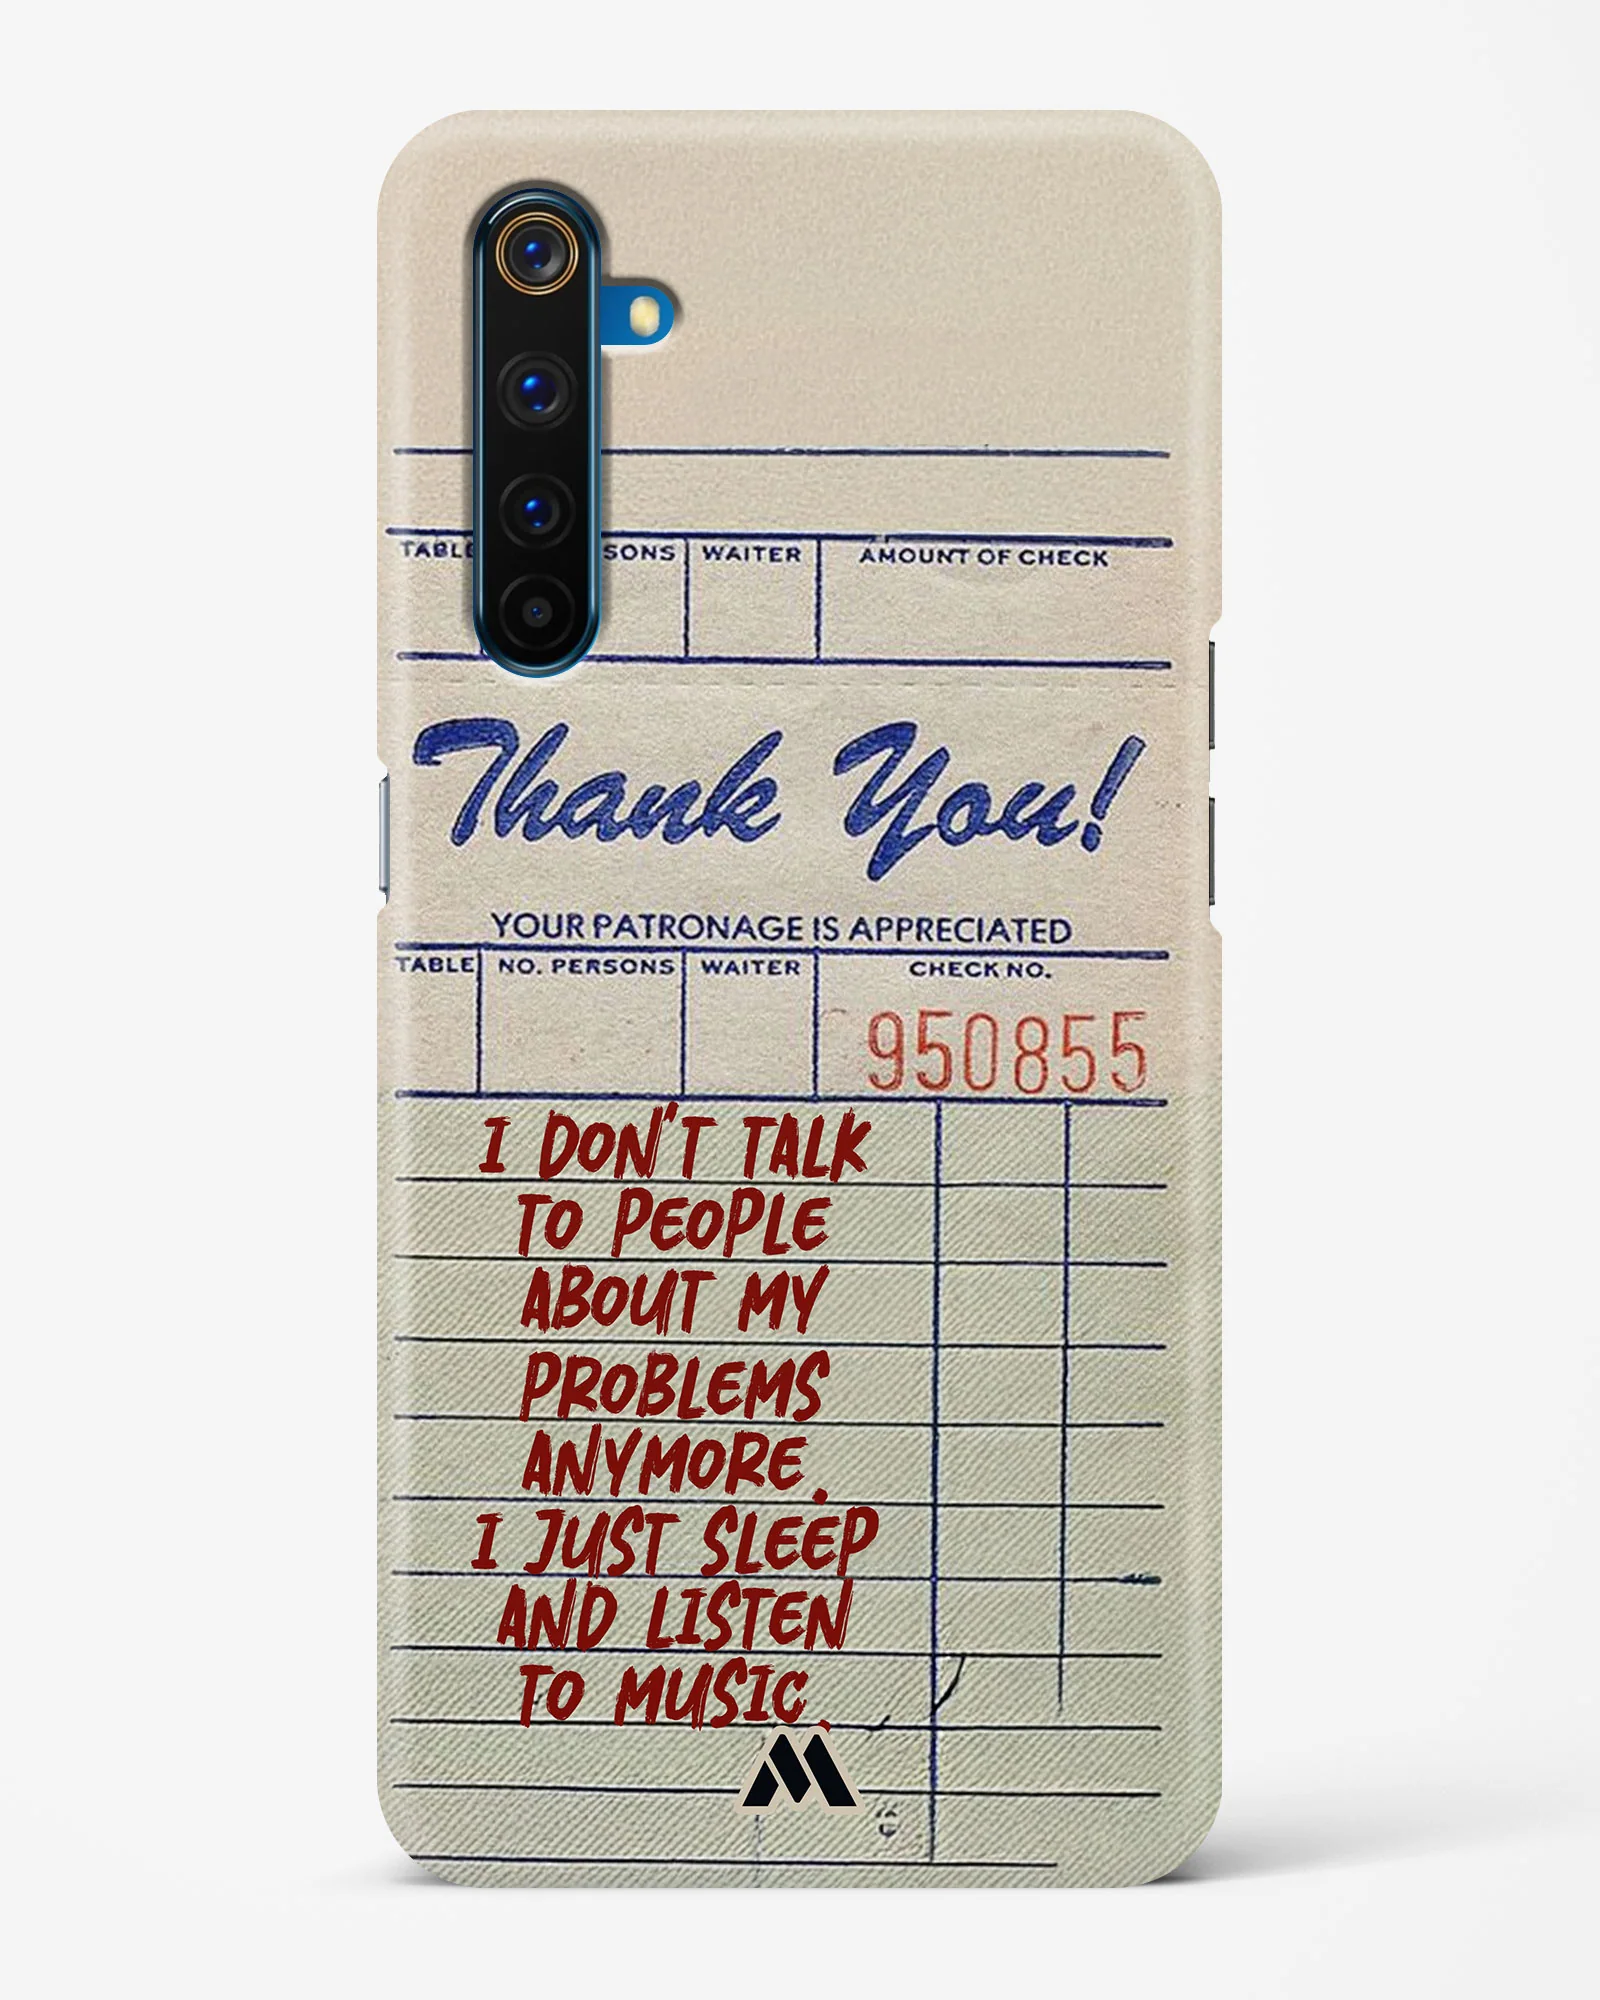 TABLE SONS WAITER AMOUNT OF CHECK
Thank You!
YOUR PATRONAGE IS APPRECIATED
TABLE NO. PERSONS WAITER CHECK NO.
950855
I DON'T TALK
TO PEOPLE
ABOUT MY
PROBLEMS
ANYMORE.
I JUST SLEEP
AND LISTEN
TO MUSIC.